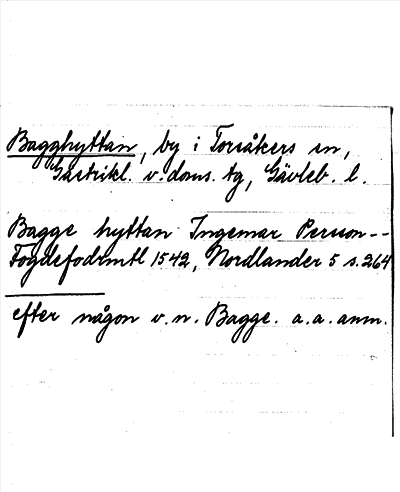 Bagghyttan, by i Torsåkers sn,
Gästrikl. v. doms. tg, Gävleb. l.
Bagge hyttan Ingemar Person--
Fogdefodrmtl 1542, Nordlander 5 s. 264
efter någon v. n. Bagge. a. a. anm.